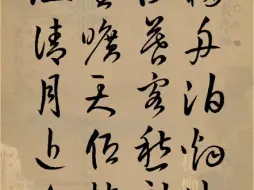 移舟泊烟
暮客愁新
曠天低樹
清月近人